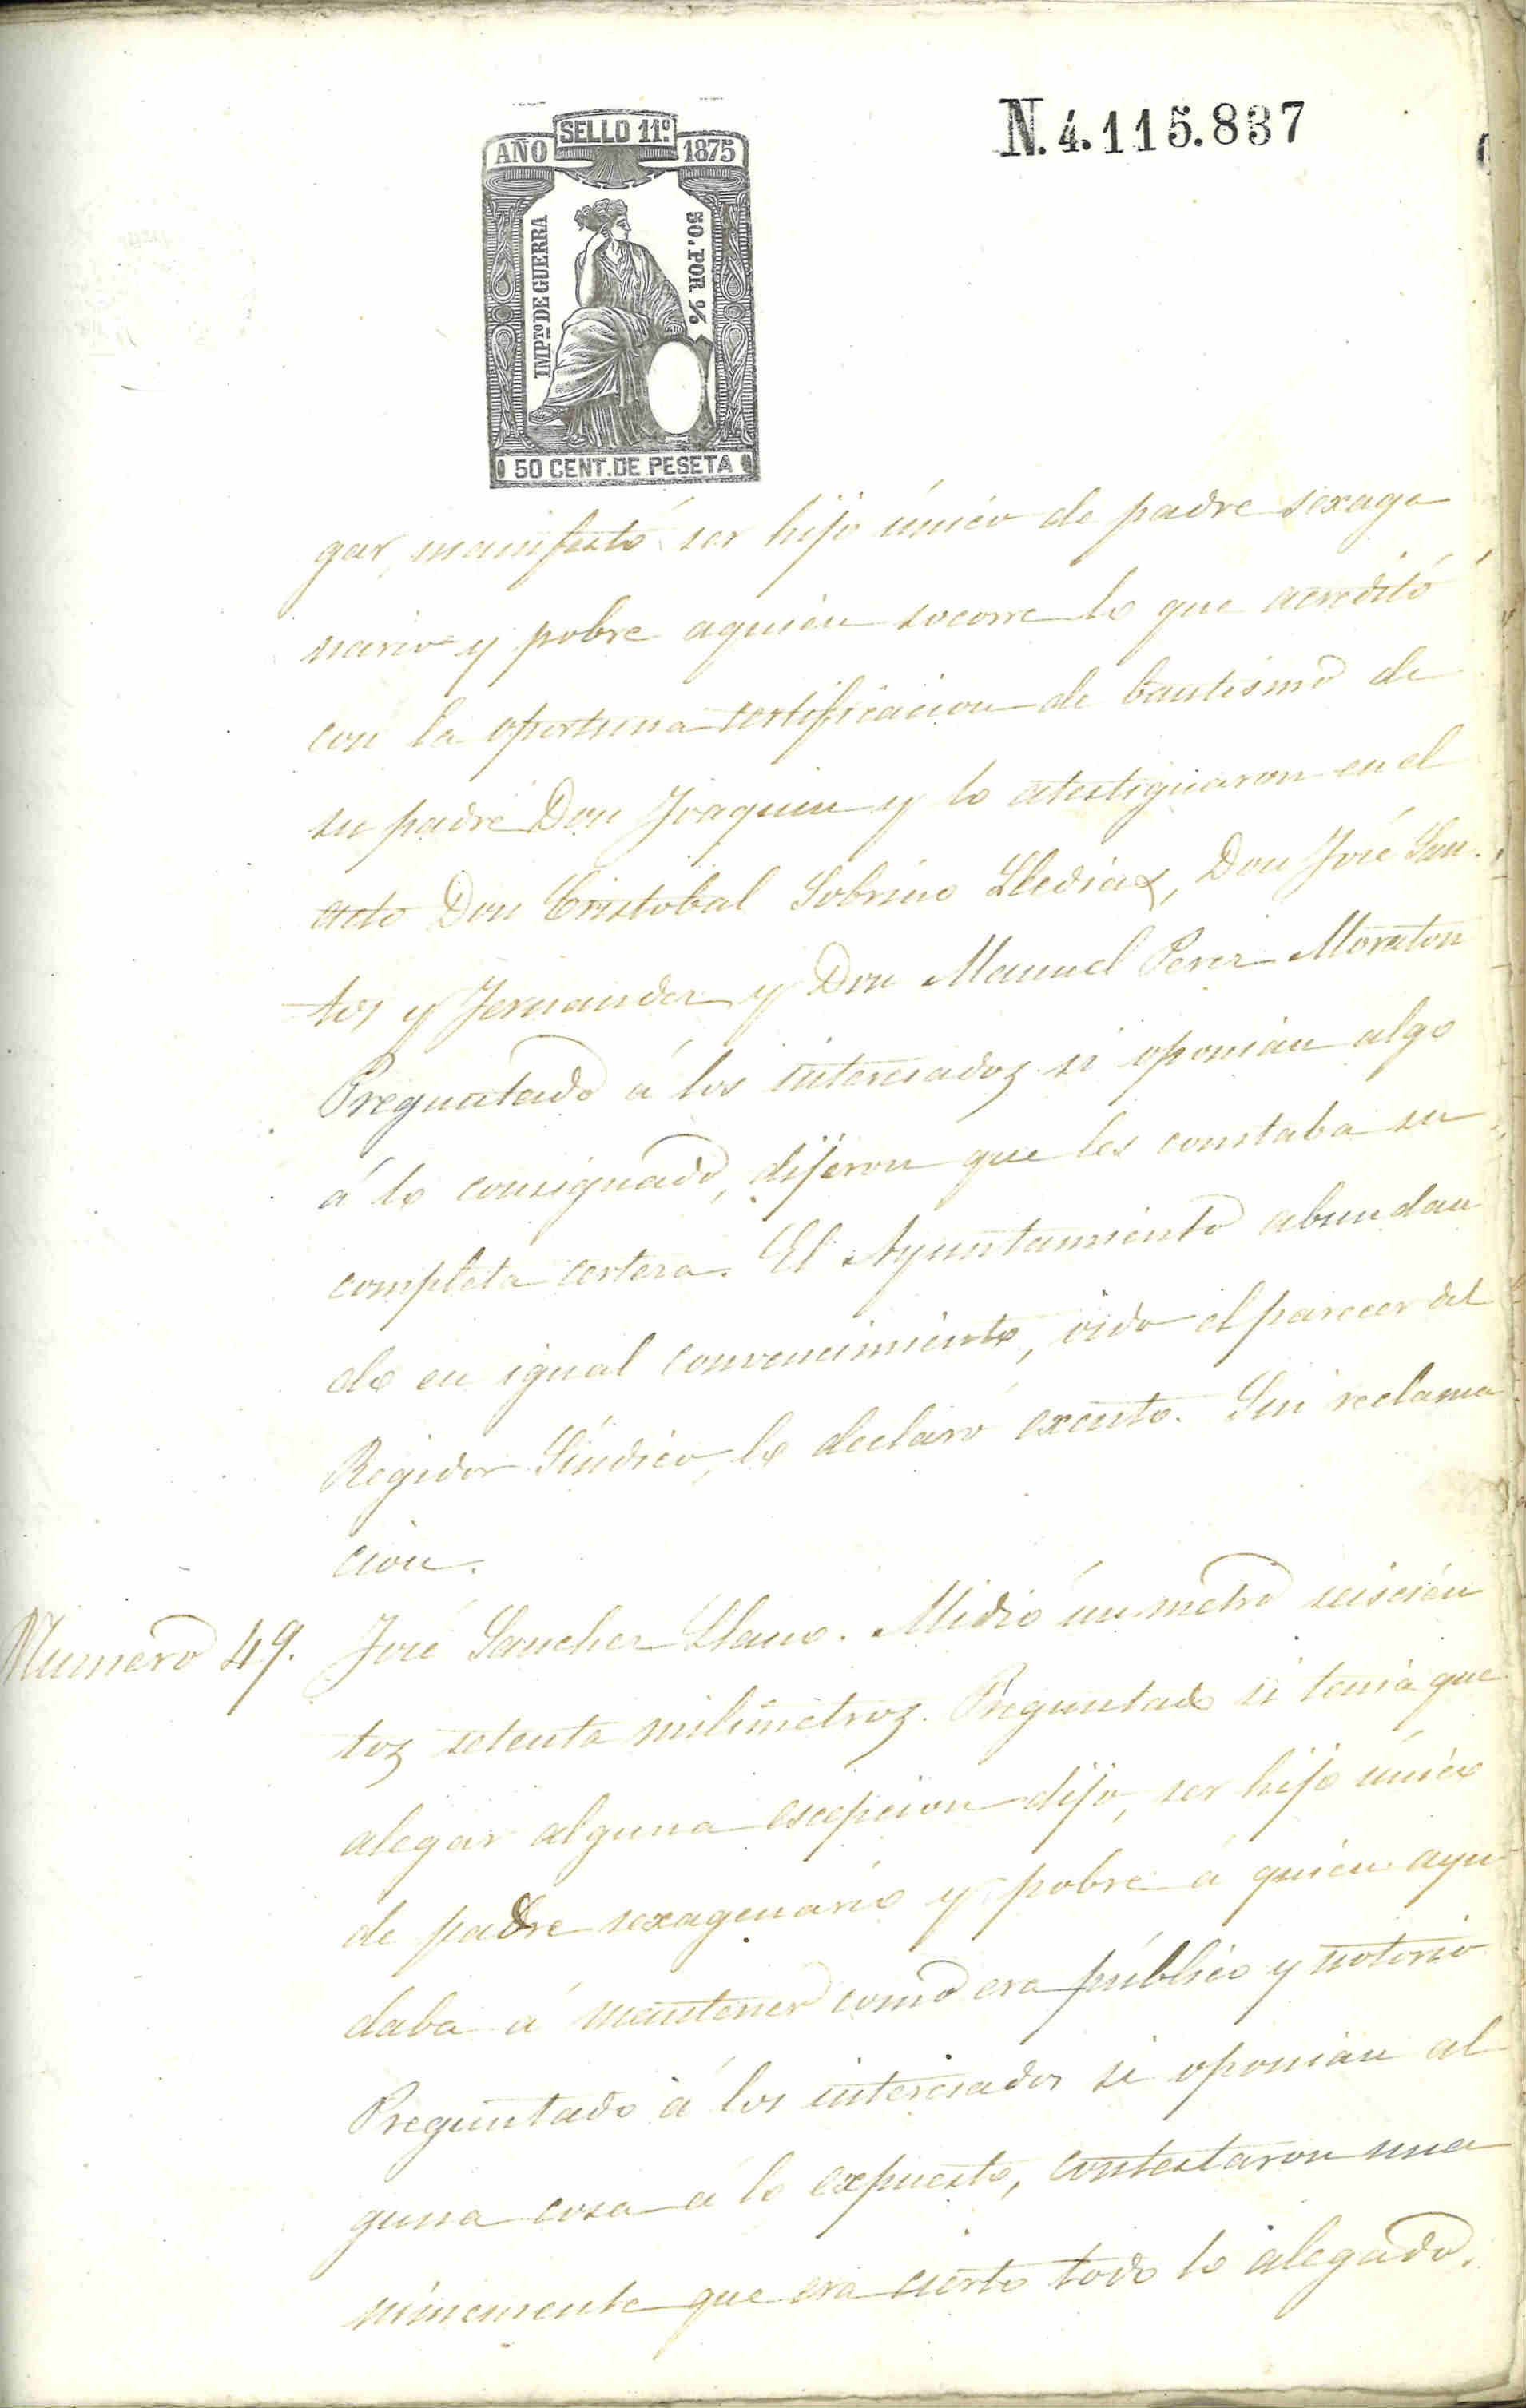 N. 4.115.837
SELLO 11º
AÑO 1875
IMPTO DE GUERRA
50. POR %
50 CENT. DE PESETA
gar, manifestó ser hijo único de padre sexage
nario y pobre aquien socorre lo que acreditó
con la oportuna certificacion de bautismo de
su padre Don Joaquin y lo atestiguaron en el
acto Don Cristobal Sobrino Don José San
tos y Fernandez y Don Manuel Perez Moraton
Preguntado á los interesados si oponian algo
á lo consignado, dijeron que les constaba su
completa certeza. El Ayuntamiento abundan
do en igual convencimiento, oido el parecer del
Regidor Síndico, lo declaró exento. Sin reclama
cion.
Numero 49. José Sanchez Llano. Midió un metro seiscien
tos setenta milimetros. Preguntado si tenia que
alegar alguna escepcion dijo, ser hijo único
de padre sexagenario y pobre á quien ayu
daba á mantener como era público y notorio
Preguntado á los interesados si oponian al
guna cosa á lo expuesto, contestaron una
nimemente que era cierto todo lo alegado.